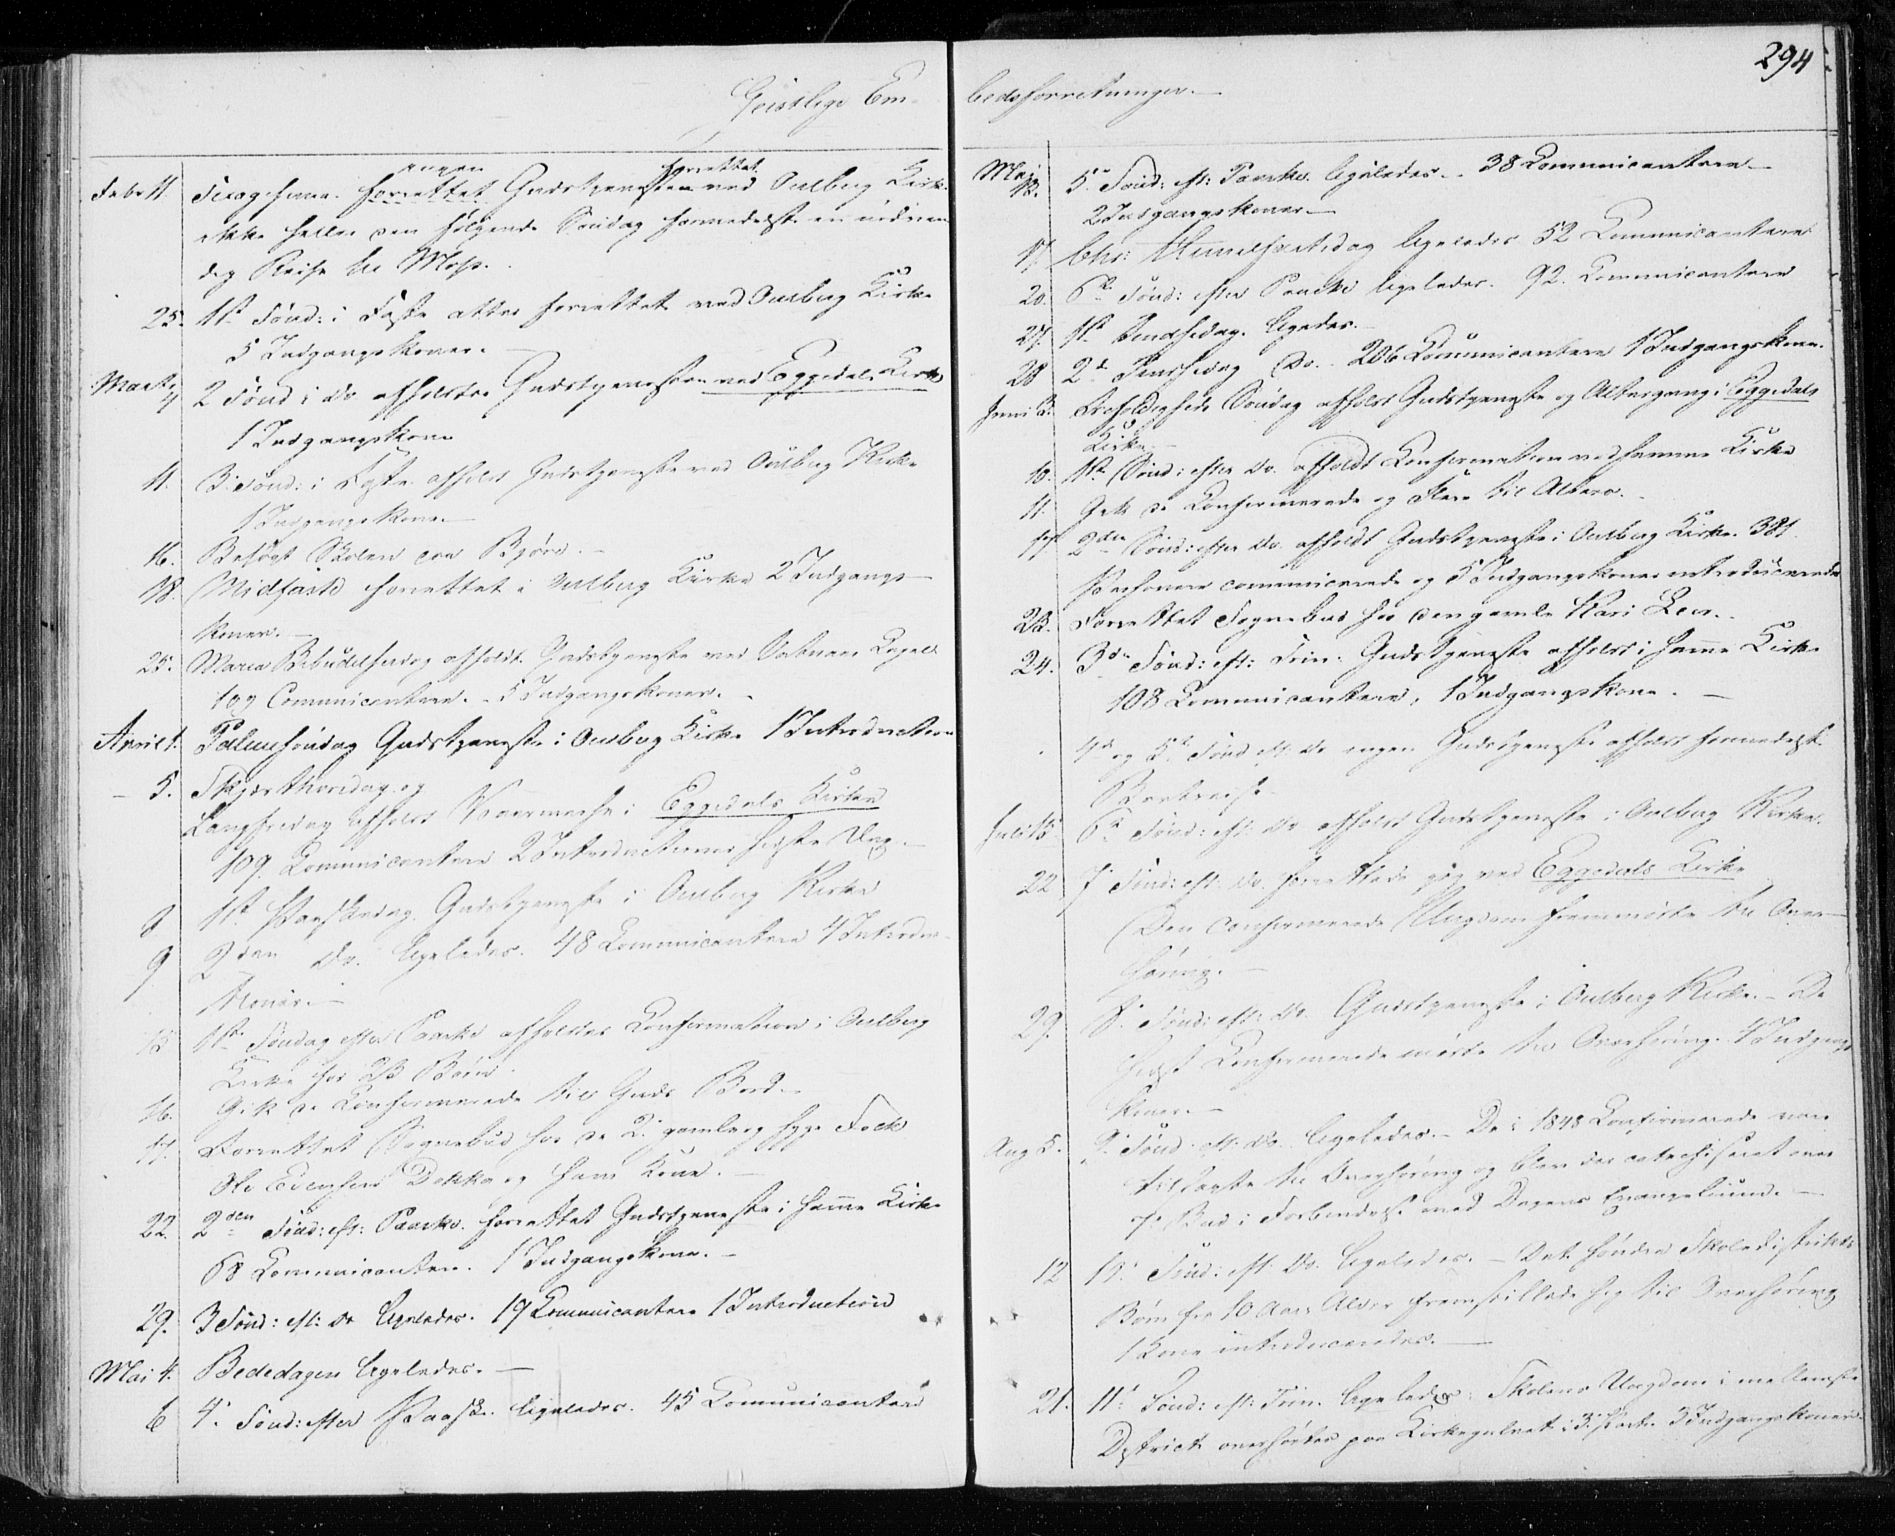 294
Geistlige Em-
bedsforretninger.
ingen forrettet
Febr 11 forrettet Gudstjenesten ved Oulberg Kirke
ikke heller den følgende Søndag formedelst en nødven
dig Reise til Moss.
25. 1ste Sønd: i Faste atter forrettet ved Oulberg Kirke
5 Indgangskoner.
Marts 4 2 Sønd i do afholdtes Gudstjenesten ved Eggedals Kirke
1 Indgangskone
11. 3. Sønd: i Faste afholdt Gudstjeneste ved Oulberg Kirke
1 Indgangskone.
16. Besøgt Skolen
18. Midfaste forrettet i Oulberg Kirke 2 Indgangs-
koner.
25. Maria Bebudelsesdag afholdt Gudstjeneste ved Capel
109 Communicantere. 5 Indgangskoner.
April 1. Palmesøndag Gudstjeneste i Oulberg Kirke 1 Introduction
5. Skjærthorsdag og
Langfredag afholdt i Eggedals Kirke
109 Communicantere 2 Introductioner første Dag.
8 1st Paaskedag Gudstjeneste i Oulberg Kirke
9 2den do. ligeledes. 48 Communicantere 4 Introduc-
tioner.
15 1ste Søndag efter Paaske afholdtes Confirmation i Oulberg
Kirke for 23 Børn.
16. Gik de Confirmerede til Guds Bord.
17. Forrettet Sognebud hos de 2
Ole Dokka og hans Kone.
22. 2den Sønd: eft: Paaske. forrettet Gudstjeneste i samme Kirke
68 Communicanter. 1 Indgangskone.
29. 3 Sønd: eft: do ligeledes. 19 Communicantere 1 Introduction
Mai 4. Bededagen ligeledes.
6 4. Sønd: efter Paaske. ligeledes. 45 Communicantere
Maj 13. 5te Sønd: eft: Paaske. ligeledes. 38 Communicantere
2 Indgangskoner
17. Chr: Himmelfartsdag ligeledes 52 Communicantere
20. 6te Sønd: efter Paaske ligeledes. 92. Communicantere
27. 1ste Pindsedag. ligedes.
28 2d Pindsedag Do. 206 Communicantere 1 Indgangskone.
Juni 3. Trefoldigheds Søndag afholdt Gudstjeneste og Altergang i Eggedals
Kirke.
10. 1ste Sønd: efter do. afholdt Confirmation ved samme Kirke
11. Gik de Confirmerede og Flere til Alters.
17 2den Sønd: efter do. afholdt Gudstjeneste i Oulberg Kirke. 381
Personer communicerede og 5 Indgangskoner introduceredes
23. Forrettet Sognebud hos den gamle Kari
24. 3die Sønd: eft: Trin. Gudstjeneste afholdt i samme Kirke
108 Communicantere, 1 Indgangskone.
4de og 5te Sønd eft. do ingen Gudstjeneste afholdt formedelst
Bortreise
Juli 15. 6te Sønd: eft: do afholdt Gudstjeneste i Oulberg Kirke.
22 7. Sønd: eft: do. forrettede jeg ved Eggedals Kirke
Den confirmerede Ungdom fremmødte til Over-
høring.
29. 8. Sønd: eft: do. Gudstjeneste i Oulberg Kirke. De
sidst Confirmerede mødte til Overhøring. 4 Indgangs
koner.
Aug 5. 9. Sønd: eft. do. ligeledes. De i 1848 Confirmerede vare
tilsagte til Overhøring og blev der catechiseret over
7de Bud i Forbindelse med Dagens Evangelium.
12 10. Sønd. eft. do. ligeledes. Det søndre Skoledistrikts
Børn fra 10 Aars Alder fremstillede sig til Overhøring
1 Kone introduceredes.
21. 11. Sønd: eft. Trin. ligeledes. Skolens Ungdom i mellemste
District overhørtes paa Kirkegulvet i 3. Part. 3 Indgangskoner